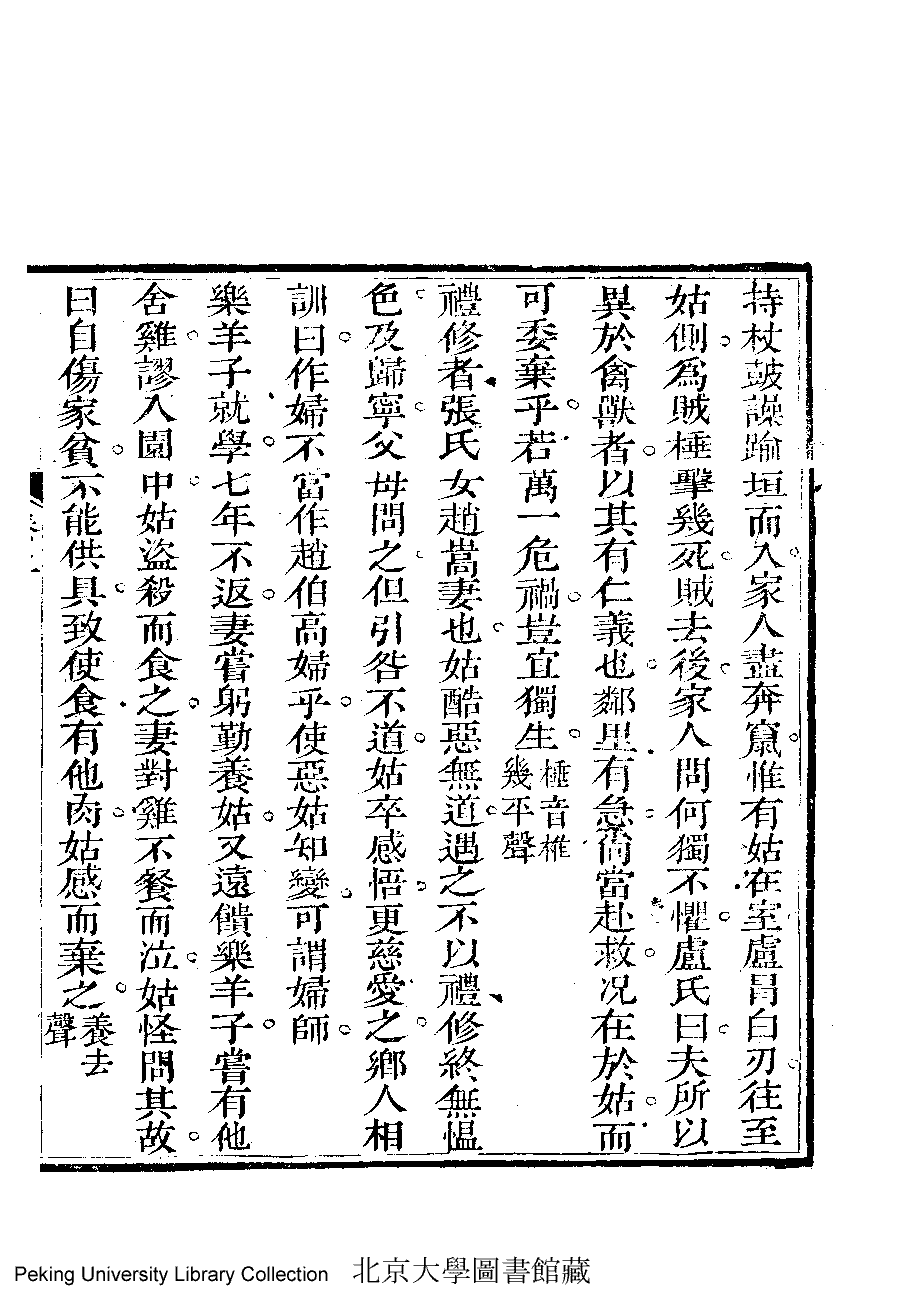 持杖鼓譟踰垣而入家人盡奔竄惟有姑在室盧冒白刃往至
姑側為賊棰擊幾死賊去後家人問何獨不懼盧氏曰夫所以
異於禽獸者以其有仁義也鄰里有急尚當赴救况在於姑而
可委棄乎若萬一危禍豈宜獨生棰音椎幾平聲
禮修者張氏女趙嵩妻也姑酷惡無道遇之不以禮修終無慍
色及歸寧父母問之但引咎不道姑卒感悟更慈愛之鄉人相
訓曰作婦不當作趙伯高婦乎使惡姑知變可謂婦師
樂羊子就學七年不返妻嘗躬勤養姑又遠饋樂羊子嘗有他
舍雞謬入園中姑盜殺而食之妻對雞不餐而泣姑怪問其故
曰自傷家貧不能供具致使食有他肉姑感而棄之養去聲
Peking University Library Collection 北京大學圖書館藏